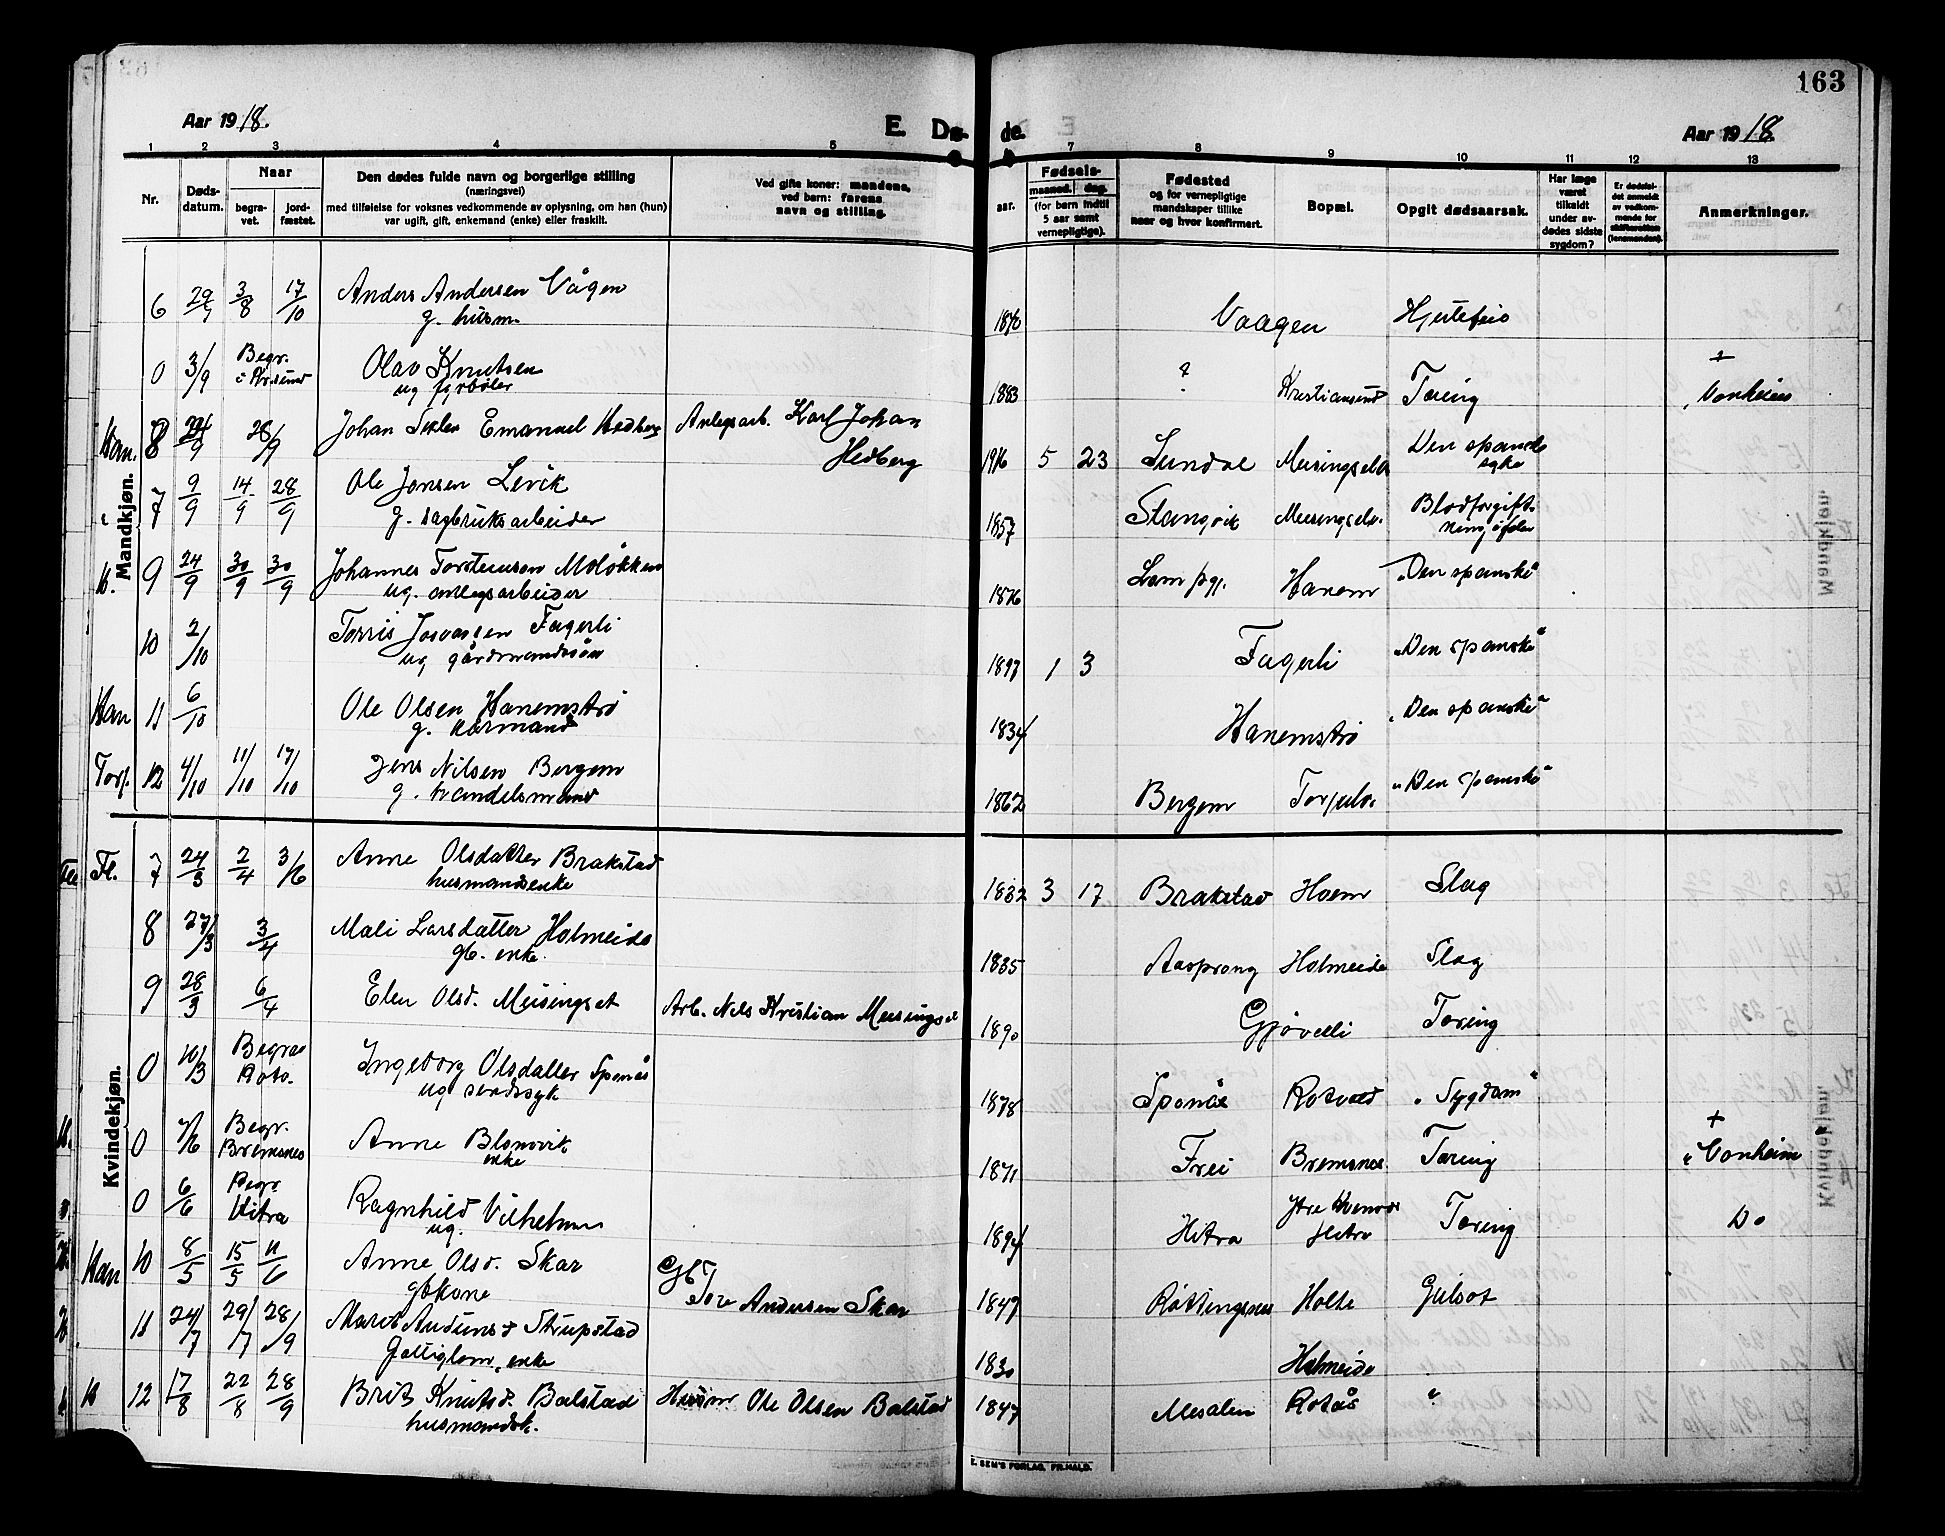 163
Aar 1918.
E. Dø-
de.
Aar 1918.
1 2 3 4 5 7 8 9 10 11 12 13
Nr.
Døds-
datum.
Naar
begra-
vet.
jord-
fæstet.
Den dødes fulde navn og borgerlige stilling
(næringsvei)
med tilføielse for voksnes vedkommende av oplysning, om han (hun)
var ugift, gift, enkemand (enke) eller fraskilt.
Ved gifte koner: mandens,
ved børn: farens
navn og stilling.
aar.
Fødsels-
maaned. dag.
(for børn indtil
5 aar samt
vernepligtige).
Fødested
og for vernepligtige
mandskaper tillike
naar og hvor konfirmert.
Bopæl.
Opgit dødsaarsak.
Har læge
været
tilkaldt
under av-
dødes sidste
sygdom?
Er dødsfal-
det anmeldt
av vedkom-
mende for
skifteretten
(lensmanden).
Anmerkninger.
Mandkjøn.
6 29/7 3/8 17/10 Anders Andersen Vågen 1840 Vaagen Hjertefeil
g. husm.
0 3/9 Begr. i Kr.sund Olav Knutsen 1883 ? Kristiansund Tæring + "Vonheim
ug fyrbøter
Han. 8 24/9 28/9 Johan Emanuel Hedberg Anlegsarb. Karl Johan
Hedberg 1916 5 23 Sundal Meisingset Den spanske
syke
" 7 9/9 14/9 28/9 Ole Jonsen Levik 1857 Stangvik Meisingset. Blodforgift-
g. sagbruksarbeider
B. 9 24/9 30/9 30/9 Johannes Torsteinsen Moløkken 1876 Lom pgj. Hanem "Den spanske"
ug. anlegsarbeider
10 2/10 Torris Fagerli 1897 1 3 Fagerli "Den spanske"
ug gårdmandssøn
Han 11 6/10 Ole Olsen Hanemstrø 1834 Hanemstrø "Den spanske"
g. kårmand
Torj. 12 4/10 11/10 17/10 Jens Nilsen Bergem 1862 Bergem Torjulv. "Den spanske"
g. handelsmand
Kvindekjøn.
Fl. 7 24/3 2/4 3/6 Anne Olsdatter Brakstad 1832 3 17 Brakstad Hoem Slag
husmandsenke
8 27/3 3/4 Mali Larsdatter Holmeide 1835 Aasprong Holmeide Slag
gb. enke.
9 28/3 6/4 Elen Olsd. Meisingset Arb. Nils Kristian Meisingset 1890 Gjøvelli Tæring
0 10/3 Begrav Roto. Ingeborg Olsdatter Sponås 1878 Sponås Rotvold "Sygdom"
ug sindssyk
0 7/6 Begr. Bremsnes Anne 1871 Frei Bremsnes Tæring + "Vonheim
enke
0 6/6 Begr Hitra Ragnhild Vilhelmsen 1894 Hitra Hitra Tæring Do
ug.
Han 10 8/5 15/5 11/6 Anne Olsd. Skar Gb
Tore Andersen Skar 1847 Røttingsnes Holte Gulsot
gbkone
11 24/7 29/7 28/9 Marit Audunsd Strupstad 1830 Holmeide
enke
B 12 17/8 22/8 28/9 Brit Knutsd. Balstad Husm Ole Olsen Balstad 1847 Mesalen Rotås "
husmandsk.
E. SEM'S FORLAG, FR.HALD.